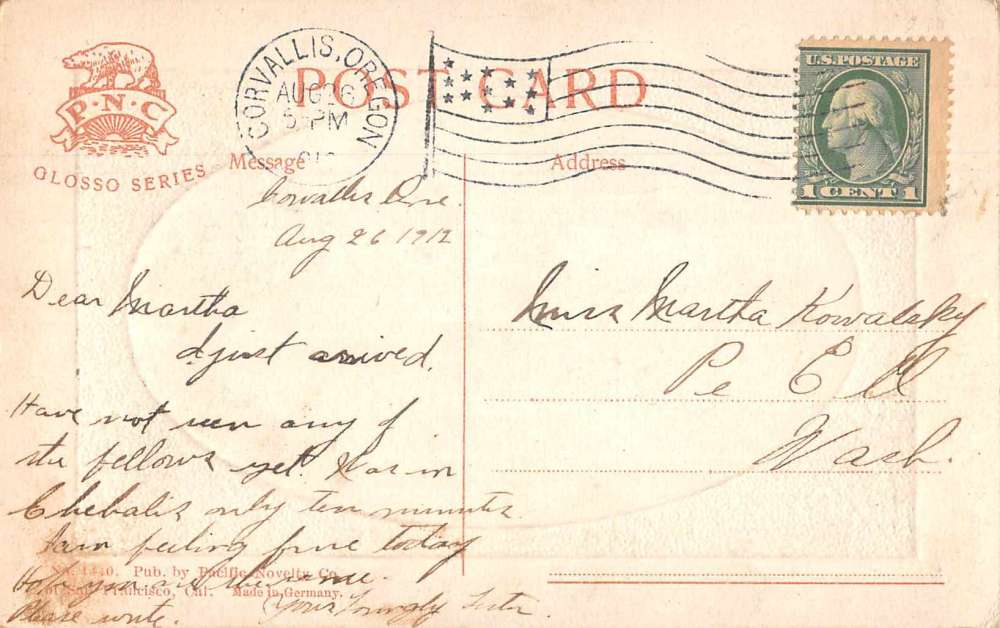 P·N·C
GLOSSO SERIES
POST CARD
CORVALLIS, OREGON
AUG 26
5 PM
U.S. POSTAGE
1 CENT 1
Message
Address
Corvallis Ore.
Aug 26 1912
Dear Martha
I just arrived.
Have not seen any of
the fellows yet. Was in
Chehalis only ten minutes.
I am feeling fine today
Hope you are the same.
Please write.
Your Lovingly Sister
Miss Martha Kowalsky
Pe Ell
Wash.
No. 1440. Pub. by Pacific Novelty Co.
San Francisco, Cal. Made in Germany.